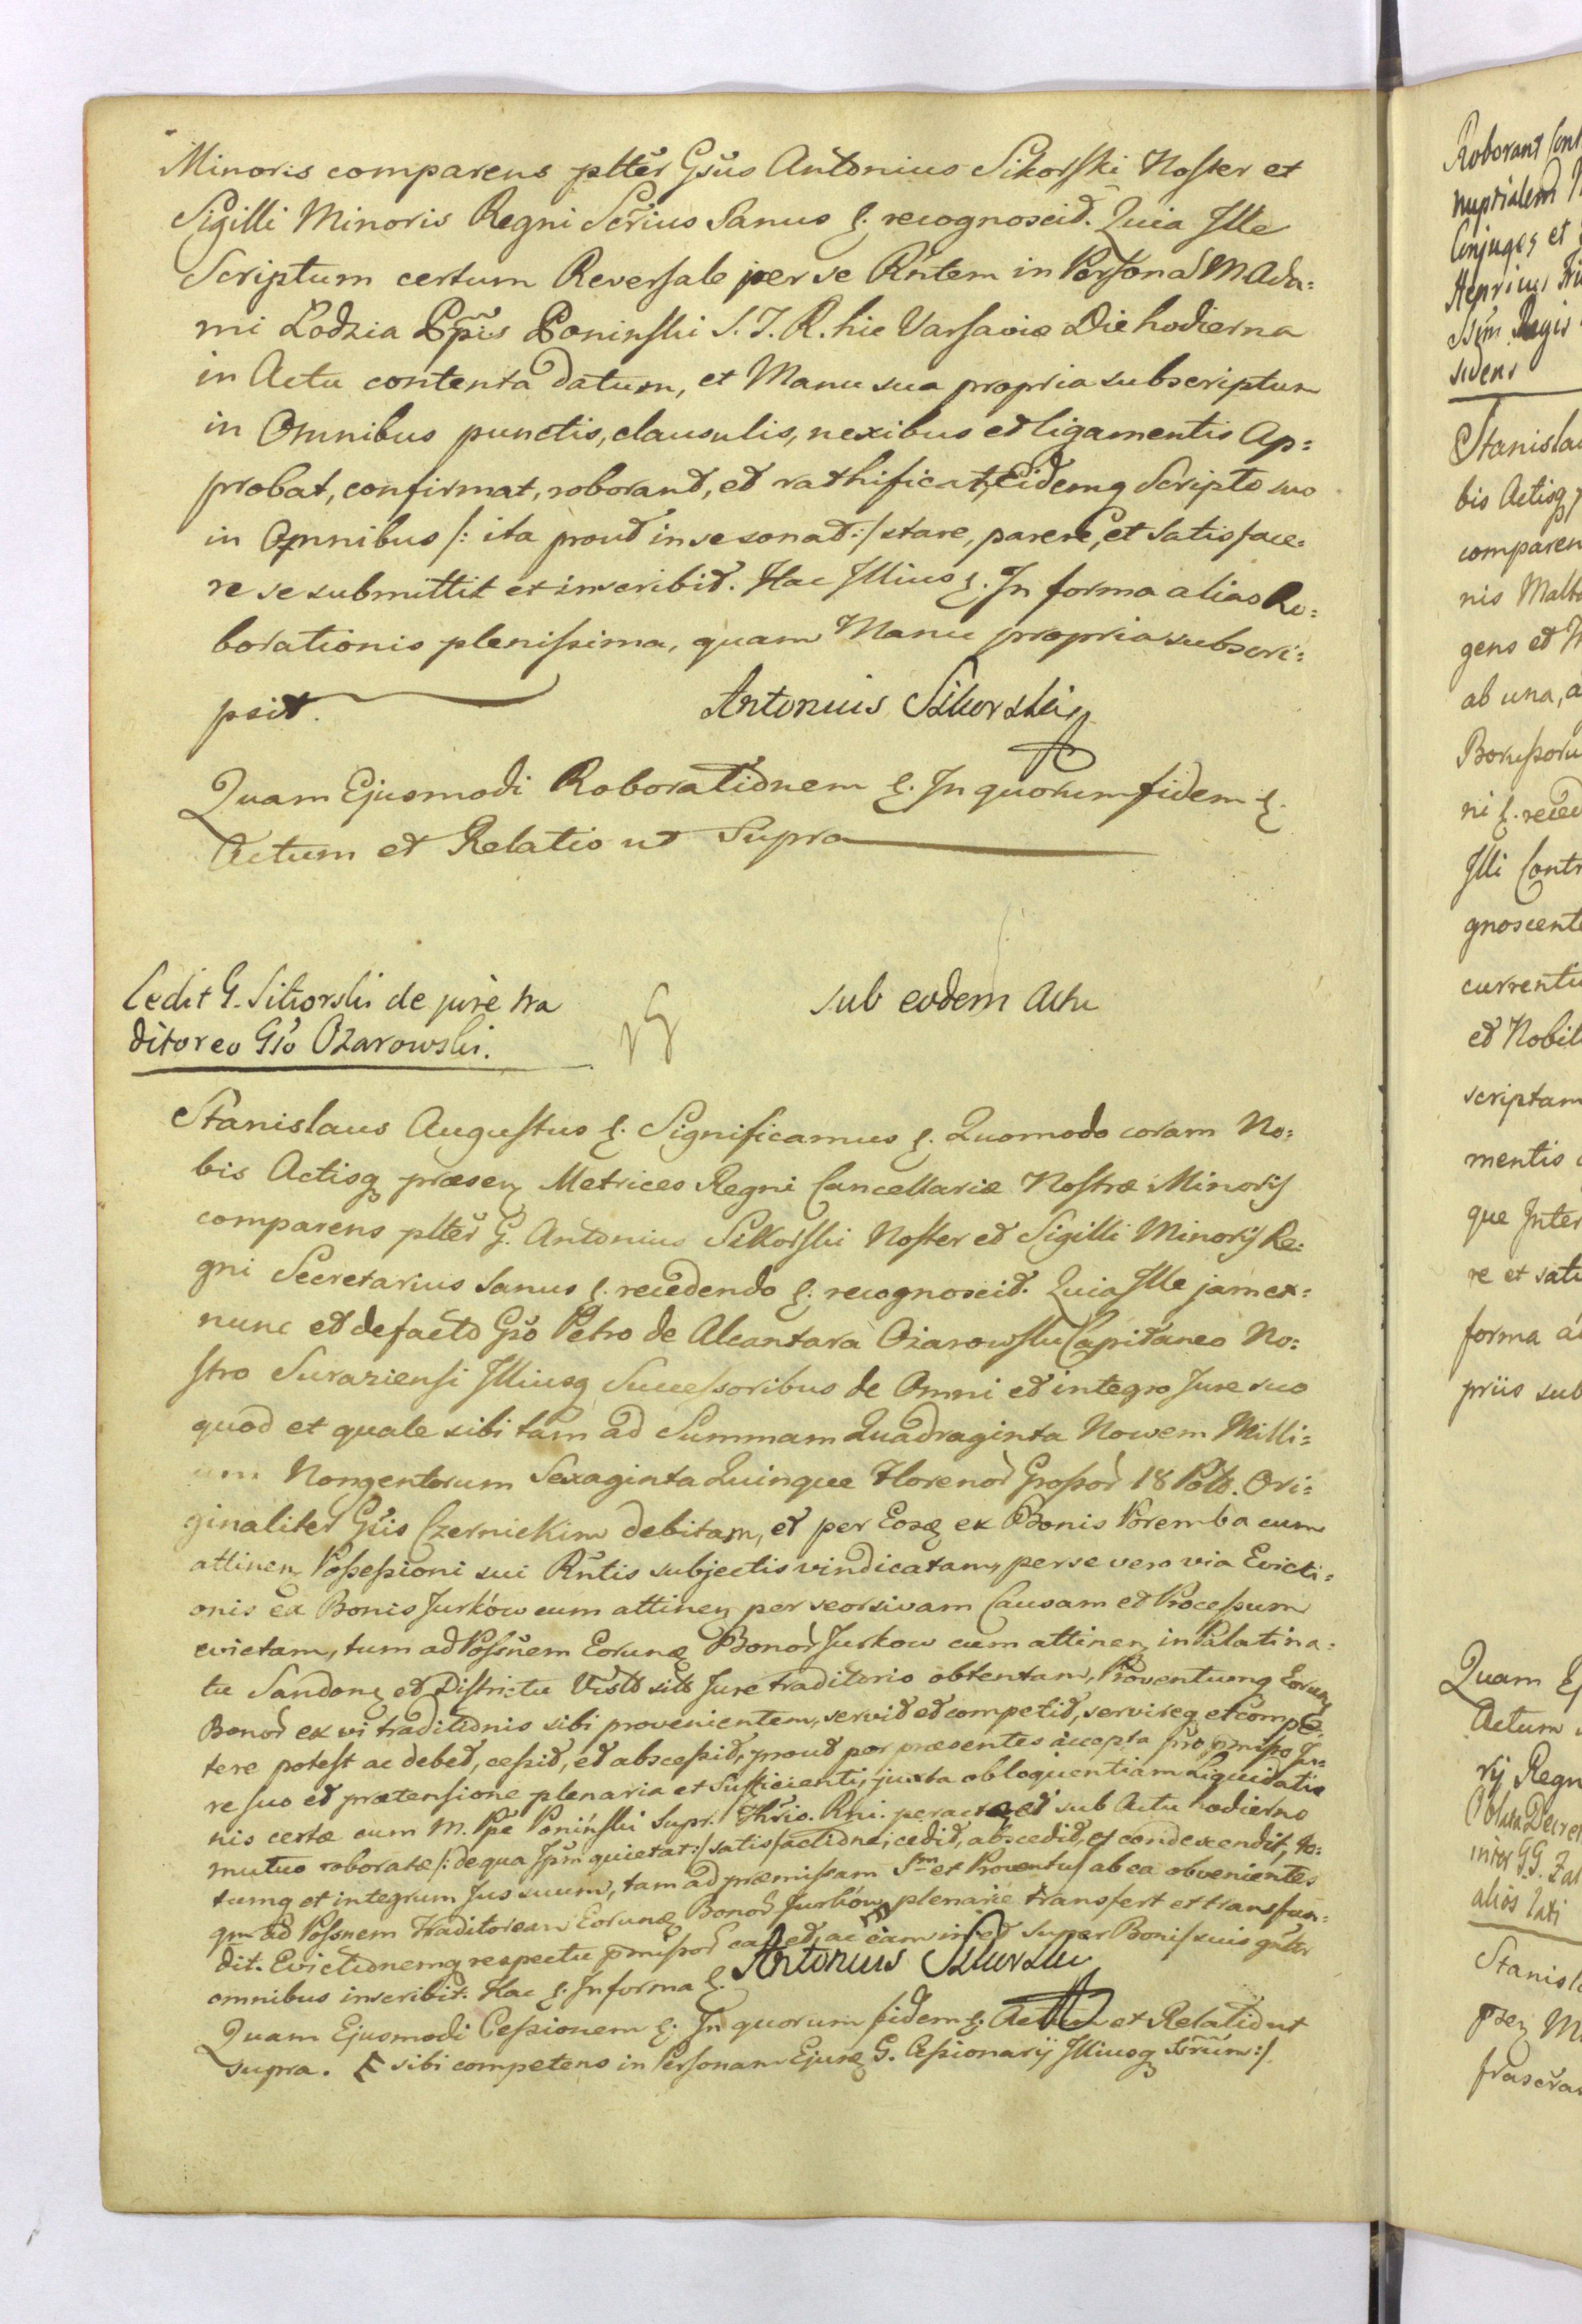 Minoris comparens pltĕr Gsŭs Antonius Sikorski Noster et
Sigilli Minoris Regni Scrius Sanus &. recognoscit. Quia Ille
Scriptum certum Reversale per se Rñtem in Personā M Ada=
mi Lodzia Ppis Poninski S. T. R. hic Varsaviæ Die hodierna
in Actu contenta datum, et Manu sua propria subscriptum
in Omnibus punctis, clausulis, nexibus et ligamentis Ap=
probat, confirmat, roborant, et rathificat, Eidemq Scripto suo
in Omnibus /: ita prout in se sonat :/ stare, parere, et satisface=
re se submittit et inscribit. Hac Illius &. In forma alias Ro=
borationis plenissima, quam Manu propria subscri=
psit. Antonius Sikorski
Quam Ejusmodi Roborationem &. In quorum fidem &.
Actum et Relatio ut Supra
Cedit G. Sikorski de jure tra
ditoreo Gso Ozarowski.
sub eodem Actu
Stanislaus Augustus &. Significamus &. Quomodo coram No=
bis Actisq præsen Metrices Regni Cancellariæ Nostræ Minoris
comparens pltĕr G. Antonius Sikorski Noster et Sigilli Minoris Re=
gni Secretarius Sanus &. recedendo &. recognoscit. Quia Ille jam ex=
nunc et de facto Gso Petro de Alcantara Ożarowski Capitaneo No=
stro Suraziensi Illiusq Successoribus de Omni et integro Jure suo
quod et quale sibi tam ad Summam Quadraginta Novem Milli=
um Nongentorum Sexaginta Quinque Florenor Grossor 18 Pols. Ori=
ginaliter Gsis Czernickim debitam, et per Eosq ex Bonis Poremba cum
attinen Possessioni sui Rñtis subjectis vindicatam, per se vero via Evicti=
onis ex Bonis Jurków cum attinen per seorsivam Causam et Processum
evictam, tum ad Possñem Eorunq Bonor Jurkow cum attinen in Palatina=
tu Sandon et Districtu Vislo sitis Jure traditorio obtentam, Proventumq Eorun
Bonor ex vi traditionis sibi provenientem, servit et competit, servireq et compe=
tere potest ac debet, cessit, et abscessit, prout per præsentes accepta pro pmisso Ju=
re suo et prætensione plenaria et sufficienti, juxta obloquentiam Liquidatio
nis certæ cum M. Ppe Poniński Supr. Thrio. Rni. peractæ, et sub Actu hodierno
mutuo roboratæ /: de qua Ipm quietat :/ satisfactione, cedit, abscedit, et condescendit, to=
tumq et integrum Jus suum, tam ad præmissam Sm et Proventus ab ea obvenientes
qm ad Possnem traditoream Eorunq Bonor Jurków plenarie transfert et transfun=
dit. Evictionemq respectu pmissor cavet, ac eam in et super Bonis suis gñlter
omnibus inscribit. Hac &. In forma &. Antonius Sikorski
Quam Ejusmodi Cessionem &. In quorum fidem &. Actum et Relatio ut
supra. sibi competens in Personam Ejusq G. Cessionarij Illiusq Scrum :/
Roborant
nuptialem
Conjuges et
sidens
Stanislau
bis Actisq
comparen
nis Malb
gens et
ab una, a
Borussoru
ni &. reced
Illi Contr
gnoscent
currenti
et Nobil
scriptam
mentis
que Inter
re et sati
forma
priis sub
Quam Ej
Actum
rij Regn
alios
Stanisl